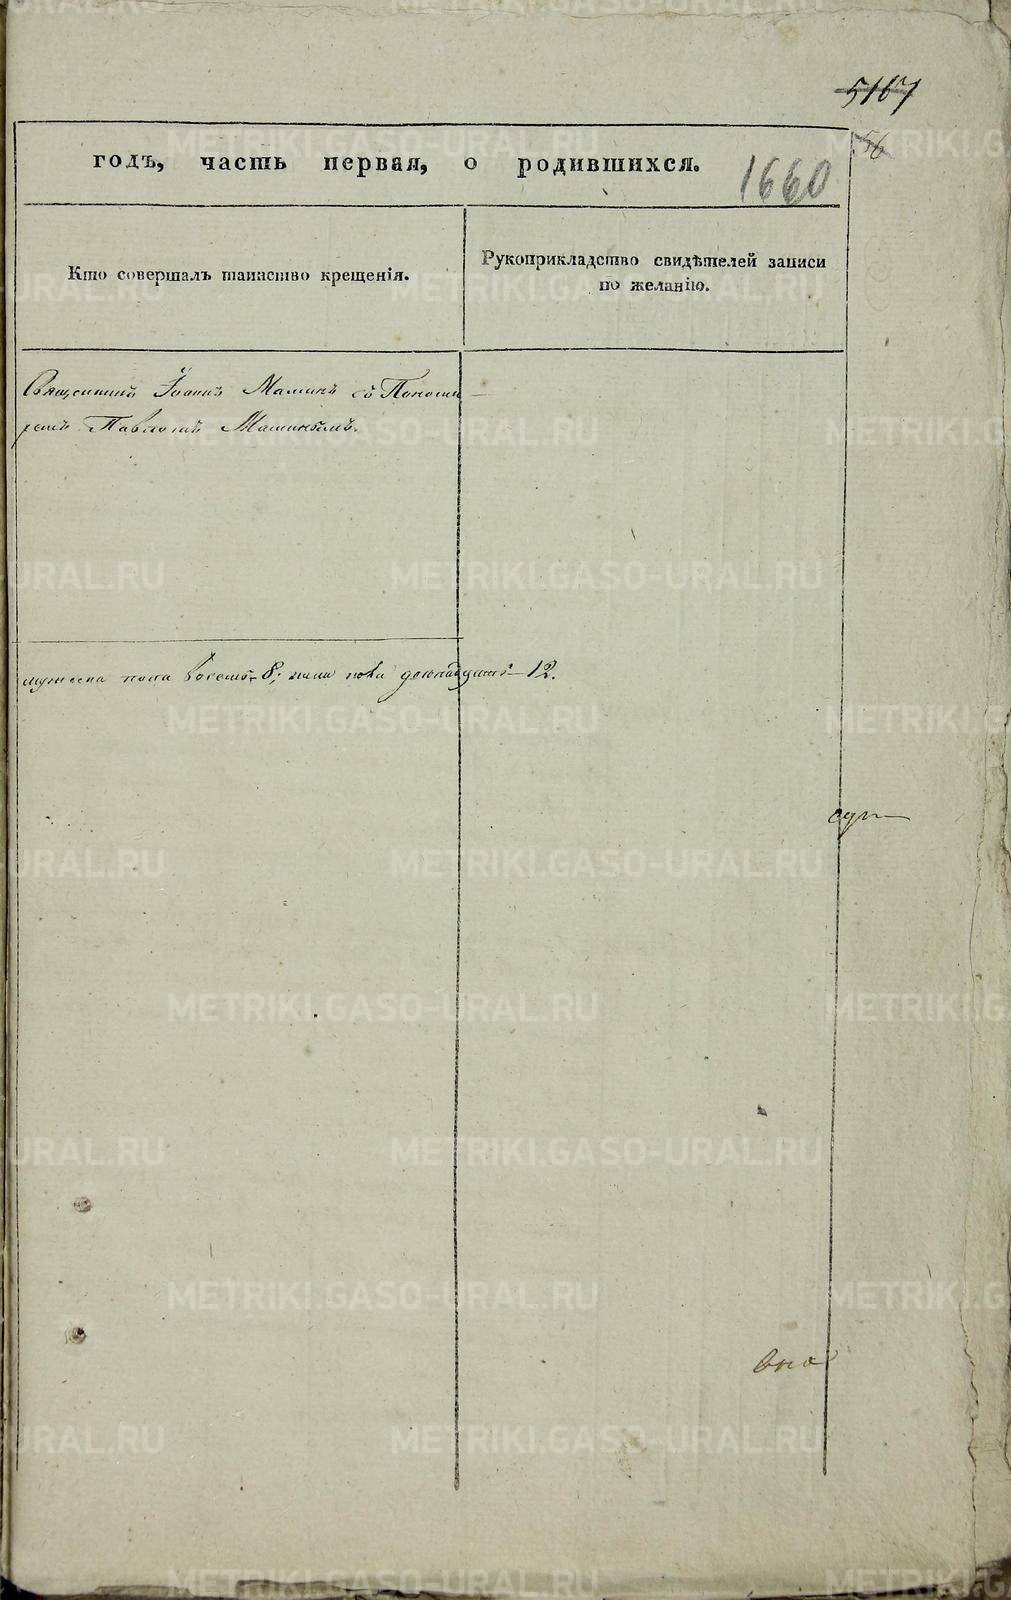 5167
56
годъ, часть первая, о родившихся.
1660
Кто совершалъ таинство крещенія.
Рукоприкладство свидѣтелей записи
по желанію.
Священникъ Іоаннъ Маминъ съ Понома
ремъ Павломъ Маминымъ.
мужеска пола восемь 8; жен 12.
METRIKI.GASO-URAL.RU